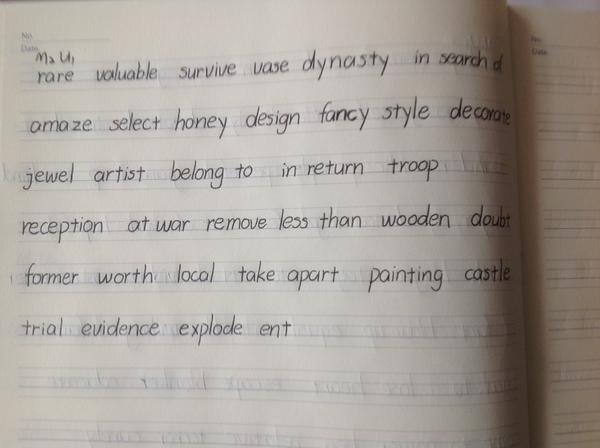 No.
Date
M2 U1
rare valuable survive vase dynasty in search of
amaze select honey design fancy style decorate
jewel artist belong to in return troop
reception at war remove less than wooden doubt
former worth local take apart painting castle
trial evidence explode ent
No.
Date